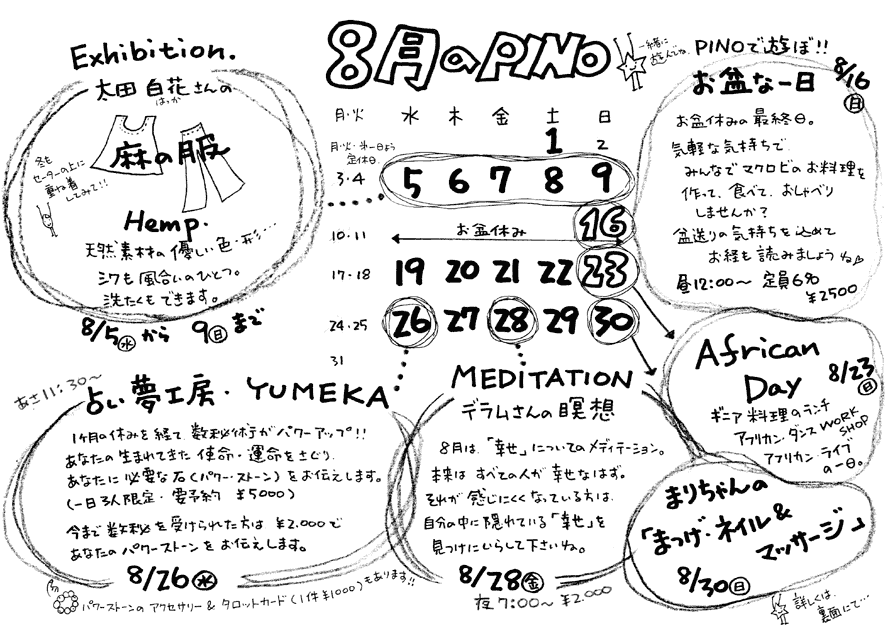 8月のPINO
Exhibition.
太田 白花さんの
はっか
麻の服
冬も
セーターの上に
重ね着
してみて!!
Hemp.
天然素材の優しい色・形…
シワも風合いのひとつ。
洗たくもできます。
8/5㊌から 9㊐まで
月・火 水 木 金 土 日
月・火・第一日よう
定休日.
1 2
3・4 5 6 7 8 9
10・11 お盆休み 16
17・18 19 20 21 22 23
24・25 26 27 28 29 30
31
一緒に
遊んでね。
PINOで遊ぼ!!
お盆な一日
8/16
㊐
お盆休みの最終日。
気軽な気持ちで
みんなでマクロビのお料理を
作って、食べて、おしゃべり
しませんか?
盆送りの気持ちを込めて
お経も読みましょうね
昼12:00〜 定員6名
¥2500
African
Day
8/23
㊐
ギニア料理のランチ
アフリカン・ダンス WORK
SHOP
アフリカン・ライブ
の一日。
まりちゃんの
「まつげ・ネイル&
マッサージ」
8/30㊐
詳しくは、
裏面にて…
あさ11:30〜
占い夢工房・YUMEKA
1ヶ月の休みを経て、数秘術がパワーアップ!!
あなたの生まれてきた使命・運命をさぐり、
あなたに必要な石(パワーストーン)をお伝えします。
(一日3人限定・要予約 ¥5000)
今まで数秘を受けられた方は ¥2.000で
あなたのパワーストーンをお伝えします。
8/26㊌
パワーストーンのアクセサリー&タロットカード(1件¥1000)もあります!!
MEDITATION
デラムさんの瞑想
8月は、「幸せ」についてのメディテーション。
本来はすべての人が幸せなはず。
それが感じにくくなっている方は、
自分の中に隠れている「幸せ」を
見つけにいらして下さいね。
8/28㊎
夜7:00〜 ¥2.000